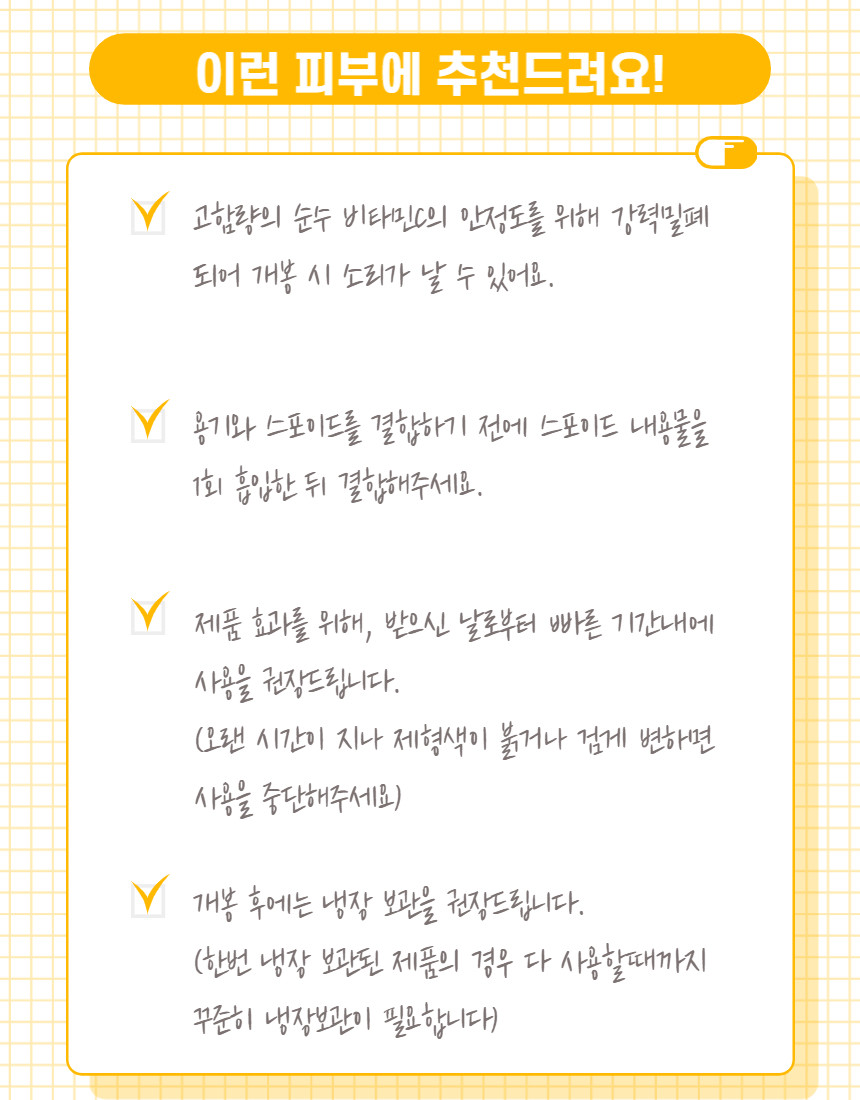 이런 피부에 추천드려요!
고함량의 순수 비타민C의 안정도를 위해 강력밀폐
되어 개봉 시 소리가 날 수 있어요.
용기와 스포이드를 결합하기 전에 스포이드 내용물을
1회 흡입한 뒤 결합해주세요.
제품 효과를 위해, 받으신 날로부터 빠른 기간내에
사용을 권장드립니다.
(오랜 시간이 지나 제형색이 붉거나 검게 변하면
사용을 중단해주세요)
개봉 후에는 냉장 보관을 권장드립니다.
(한번 냉장 보관된 제품의 경우 다 사용할때까지
꾸준히 냉장보관이 필요합니다)